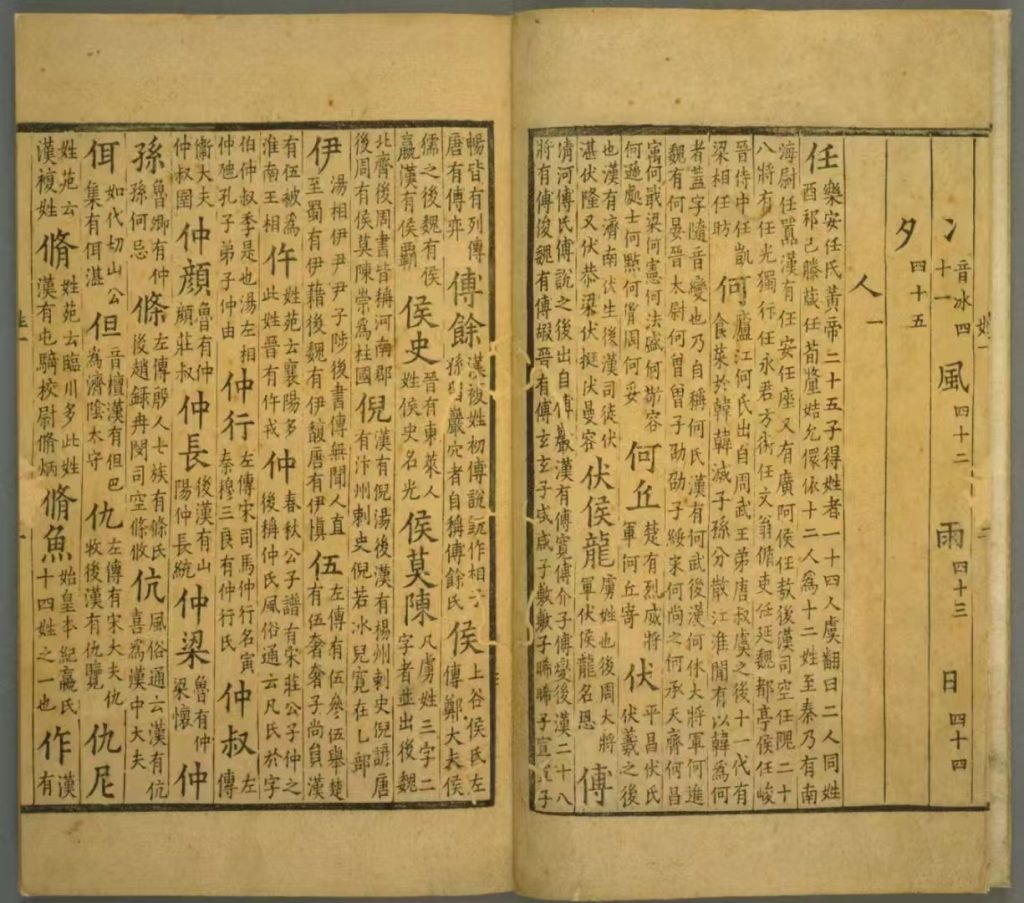 冫音冰四十一 風四十二 雨四十三 日四十四
夕四十五
人一
任樂安任氏黃帝二十五子得姓者一十四人虞翻曰二人同姓酉祁己滕葴任荀釐姞允儇依十二人為十二姓至秦乃有南
海尉任囂漢有任安任座又有廣阿侯任敖後漢司空任隗二十八將有任光獨行任永君方術任文翁循吏任延魏都亭侯任峻
晉侍中任凱梁相任昉 何廬江何氏出自周武王弟唐叔虞之後十一代有食菜於韓韓滅子孫分散江淮閒有以韓為何
者蓋字隨音變也乃自稱何氏漢有何武後漢何休大將軍何進魏有何晏晉太尉何曾曾子劭劭子綏宋何尚之何承天齊何昌
㝢何戢梁何憲何法何敬容何遜處士何點何胤周何妥 何丘楚有烈威將軍何丘寄 伏平昌伏氏伏羲之後
也漢有濟南伏生後漢司徒伏湛伏隆又伏恭梁伏挺伏曼容 伏侯龍虜姓也後周大將軍伏侯龍名恩 傅
清河傅氏傅說之後出自傅巖漢有傅寬傅介子傅燮後漢二十八將有傅俊魏有傅嘏晉有傅玄玄子咸咸子敷敷子晞晞子宣子
暢皆有列傳唐有傅弈 傅餘漢複姓初傅說既作相子孫留巖穴者自稱傅餘氏 侯上谷侯氏左傳鄭大夫侯
儒之後魏有侯嬴漢有侯霸 侯史晉有東萊人姓侯史名光 侯莫陳凡虜姓三字二字者並出後魏
北齊後周書皆稱河南郡後周有侯莫陳崇為柱國 倪漢有倪湯後漢有楊州刺史倪諺唐有汴州刺史倪若冰兒寬在乚部
伊湯相伊尹尹子陟後周書傳無聞人直至蜀有伊藉後魏有伊馥唐有伊慎 伍左傳有伍參伍舉楚有伍奢奢子尚負漢
有伍被為淮南王相 仵姓苑云襄陽多此姓晉有仵戎 仲春秋公子譜有宋莊公子仲之後稱仲氏風俗通云凡氏於字
伯仲叔季是也湯左相仲虺孔子弟子仲由 仲行左傳宋司馬仲行名寅秦穆三良有仲行氏 仲叔左傳
衞大夫仲叔圉 仲顏魯有仲顏莊叔 仲長後漢有山陽仲長統 仲梁魯有仲梁懷 仲
孫魯卿有仲孫何忌 條左傳殷人七族有條氏後趙錄冉閔司空條攸 伉風俗通云漢有伉喜為漢中大夫
佴如代切山公集有佴湛 但音檀漢有但巴為濟陰太守 仇左傳有宋大夫仇牧後漢有仇覽 仇尼
姓苑云漢複姓 脩姓苑云臨川多此姓漢有屯騎校尉脩炳 脩魚始皇本紀嬴氏十四姓之一也 作漢有